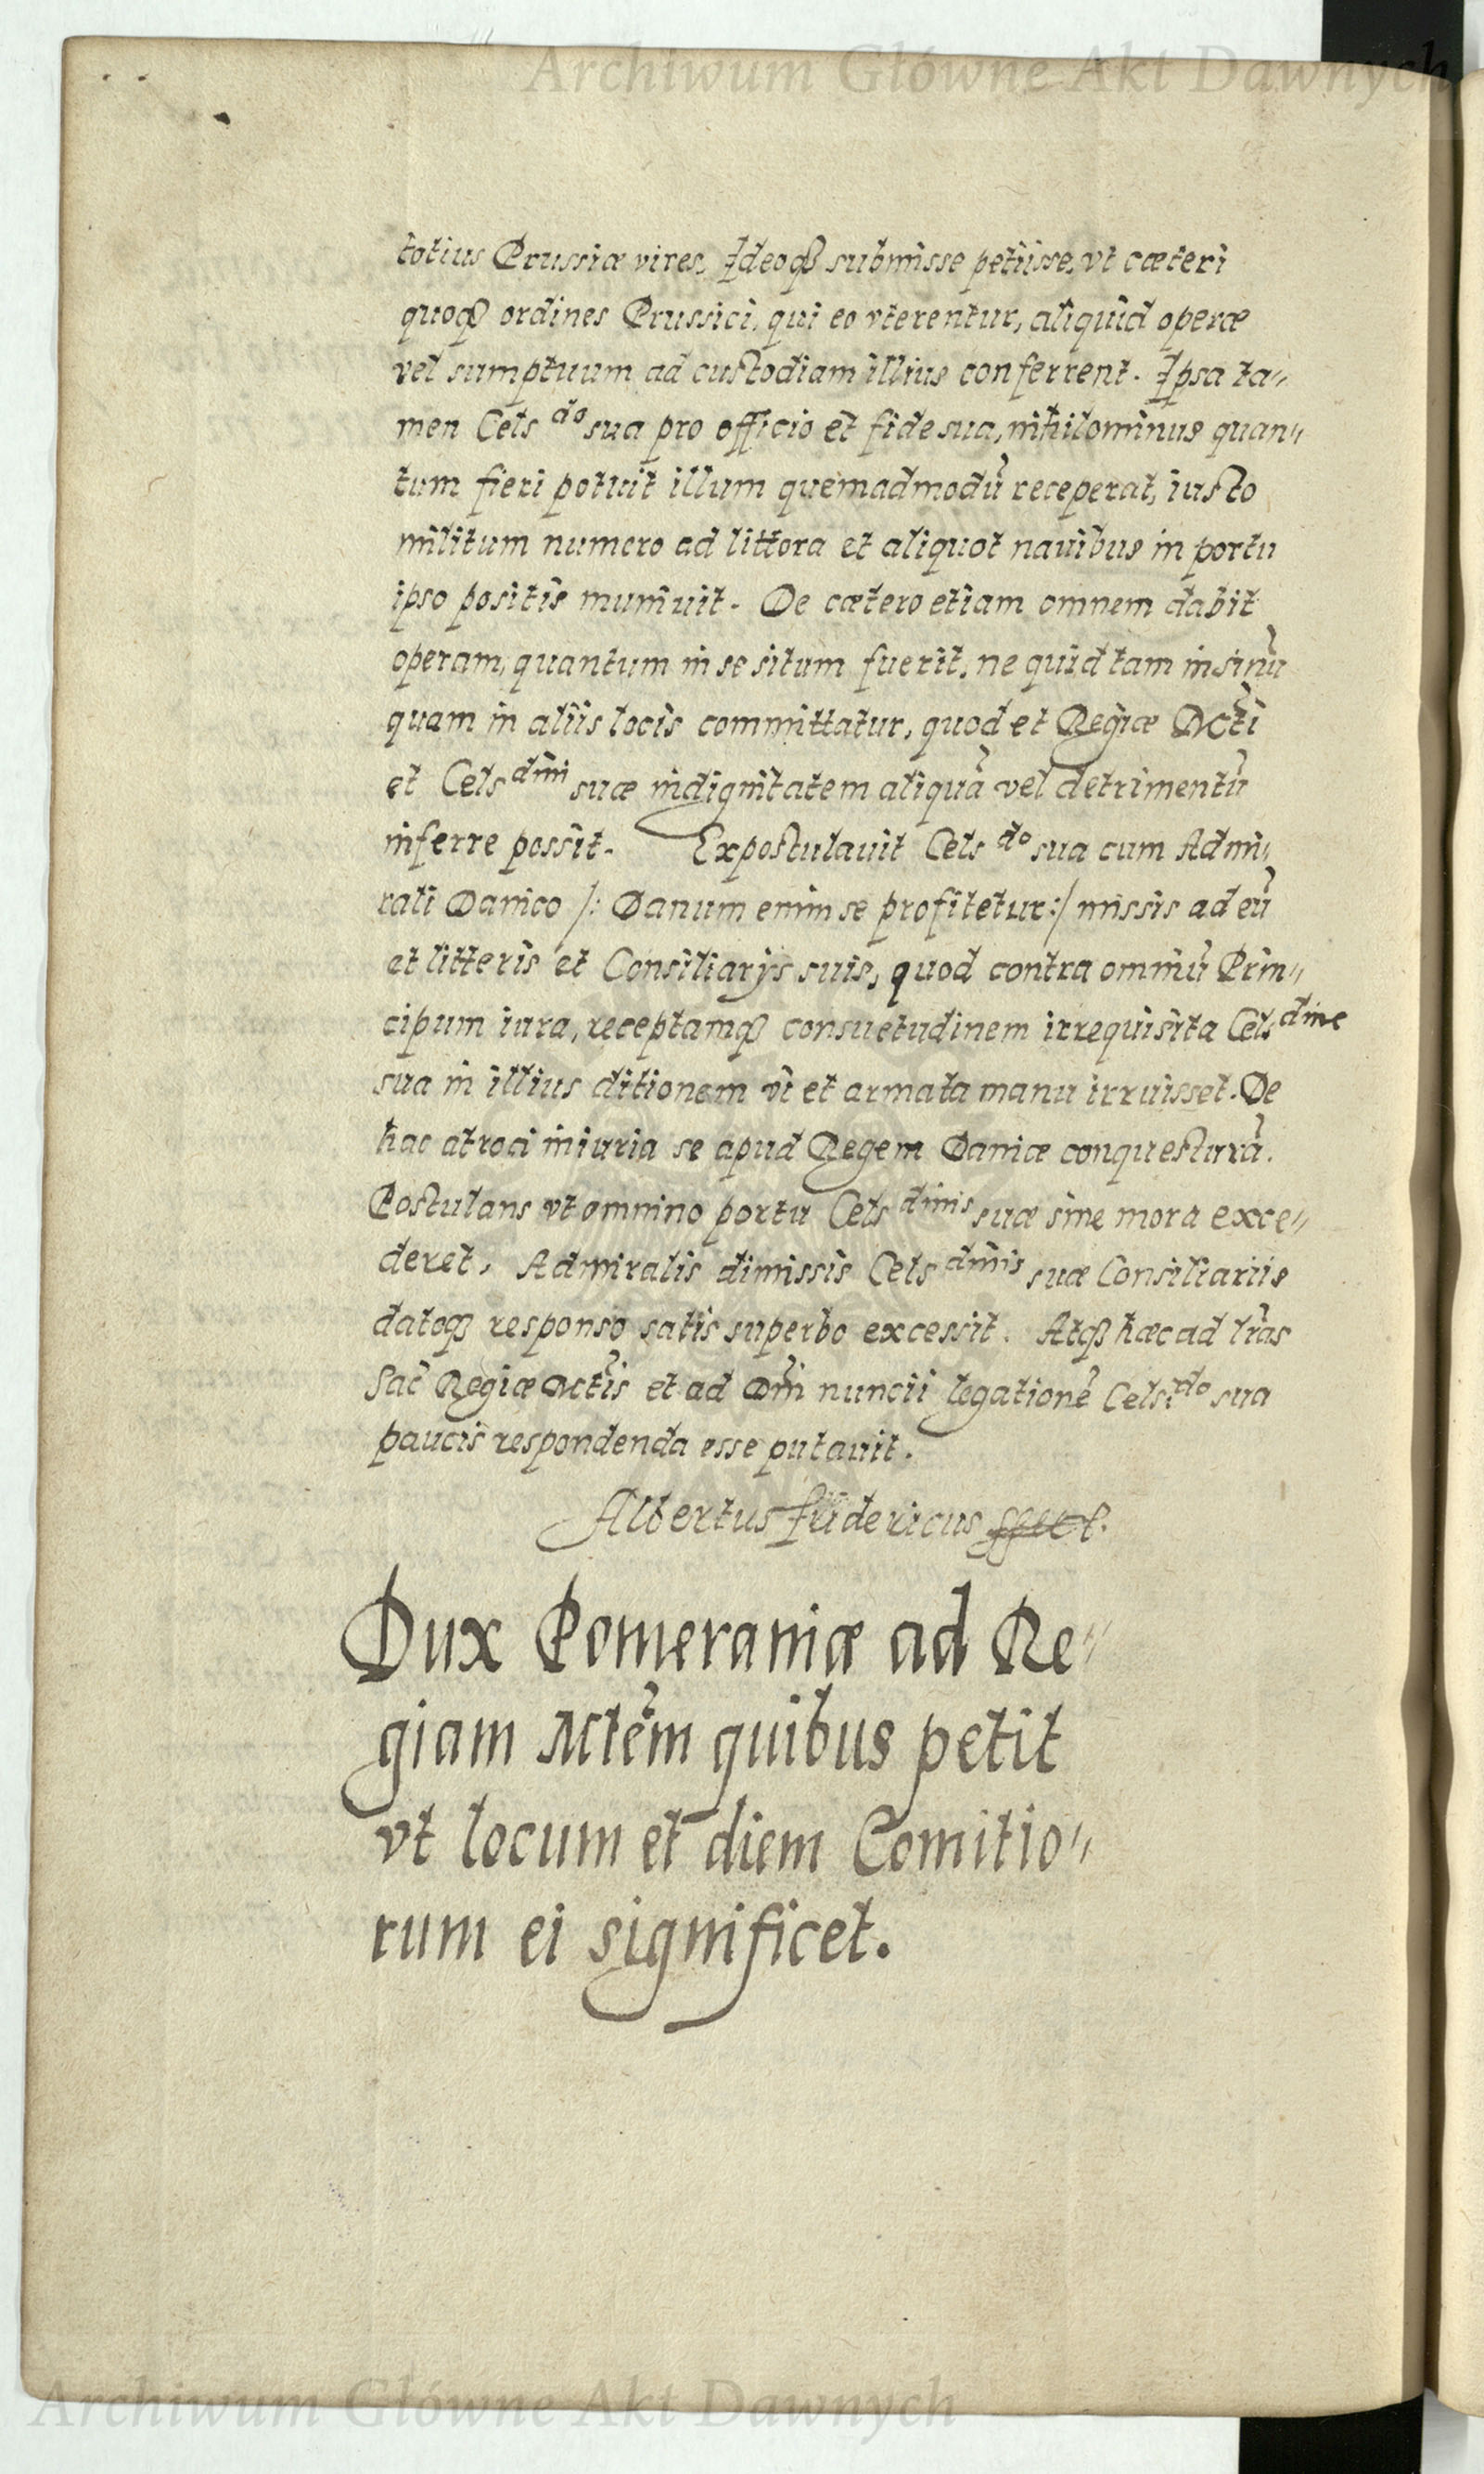 Archiwum Główne Akt Dawnych
totius Prussiæ vires. Ideoq submisse petiisse, vt cæteri
quoq ordines Prussici, qui eo vterentur, aliquid operæ
vel sumptuum ad custodiam illius conferrent. Ipsa ta„
men Cels do sua pro officio et fide sua, nihilominus quan„
tum fieri potuit illum quemadmodū receperat, iusto
militum numero ad littora et aliquot nauibus in portu
ipso positis muniuit. De cætero etiam omnem dabit
operam, quantum in se situm fuerit, ne quid tam in sinū
quam in aliis locis committatur, quod et Regiæ Mcti
et Cels dini suæ indignitatem aliquā vel detrimentū
inferre possit. Expostulauit Cels do sua cum Admi„
rali Danico /: Danum enim se profitetur :/ missis ad eū
et litteris et Consiliarijs suis, quod contra omniū Prin„
cipum iura, receptamq consuetudinem irrequisita Cels dine
sua in illius ditionem vi et armata manu irruisset. De
hac atroci iniuria se apud Regem Daniæ conquesturā.
Postulans vt omnino portu Cels dinis suæ sine mora exce„
deret. Admiralis dimissis Cels dinis suæ Consiliariis
datoq responso satis superbo excessit. Atq hæc ad lras
Sac Regiæ Mctis et ad Dni nuncii legationē Celsitdo sua
paucis respondenda esse putauit.
Albertus fridericus
Dux Pomeraniæ ad Re„
giam Mtem quibus petit
vt locum et diem Comitio„
rum ei significet.
Archiwum Główne Akt Dawnych